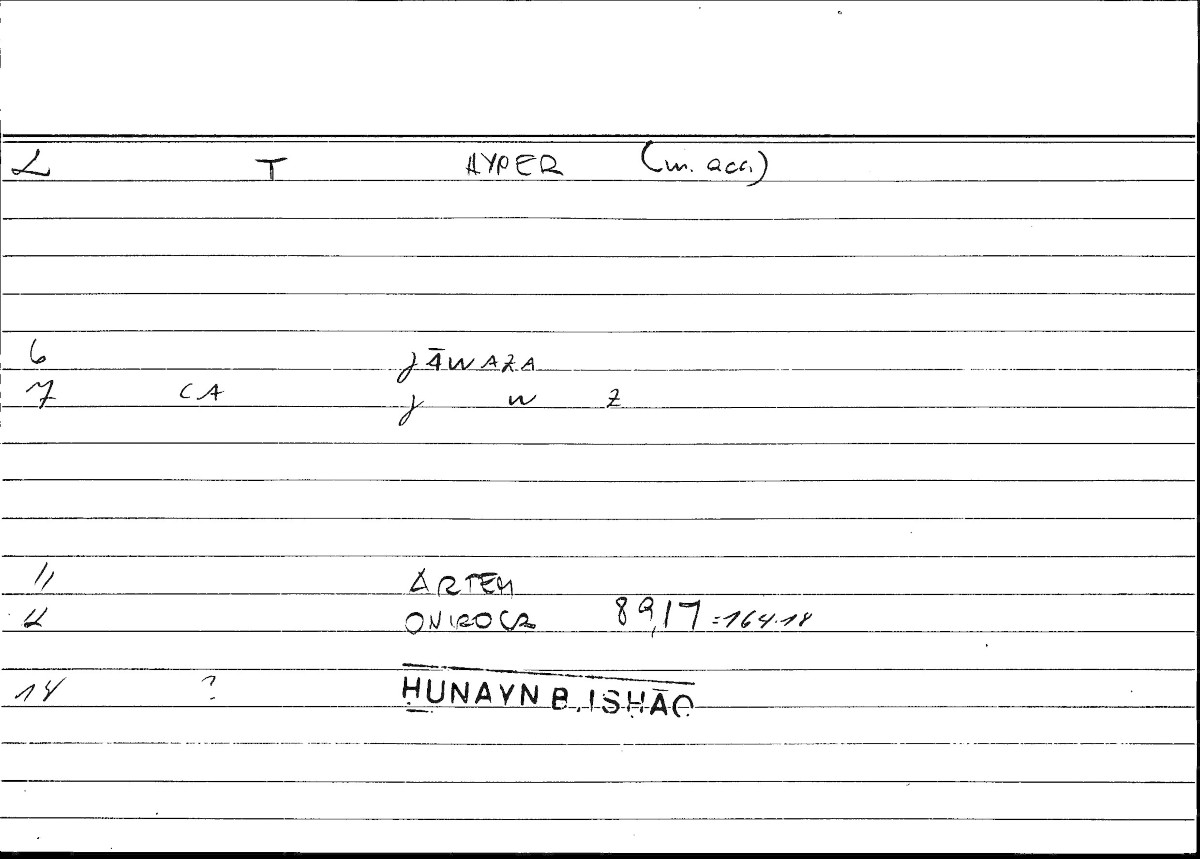 2 T HYPER (m. acc.)
6 JĀWAZA
7 CA J W Z
11 ARTEM
12 ONIROCR 89,17 = 164.18
14 ? ḤUNAYN B. ISḤĀQ